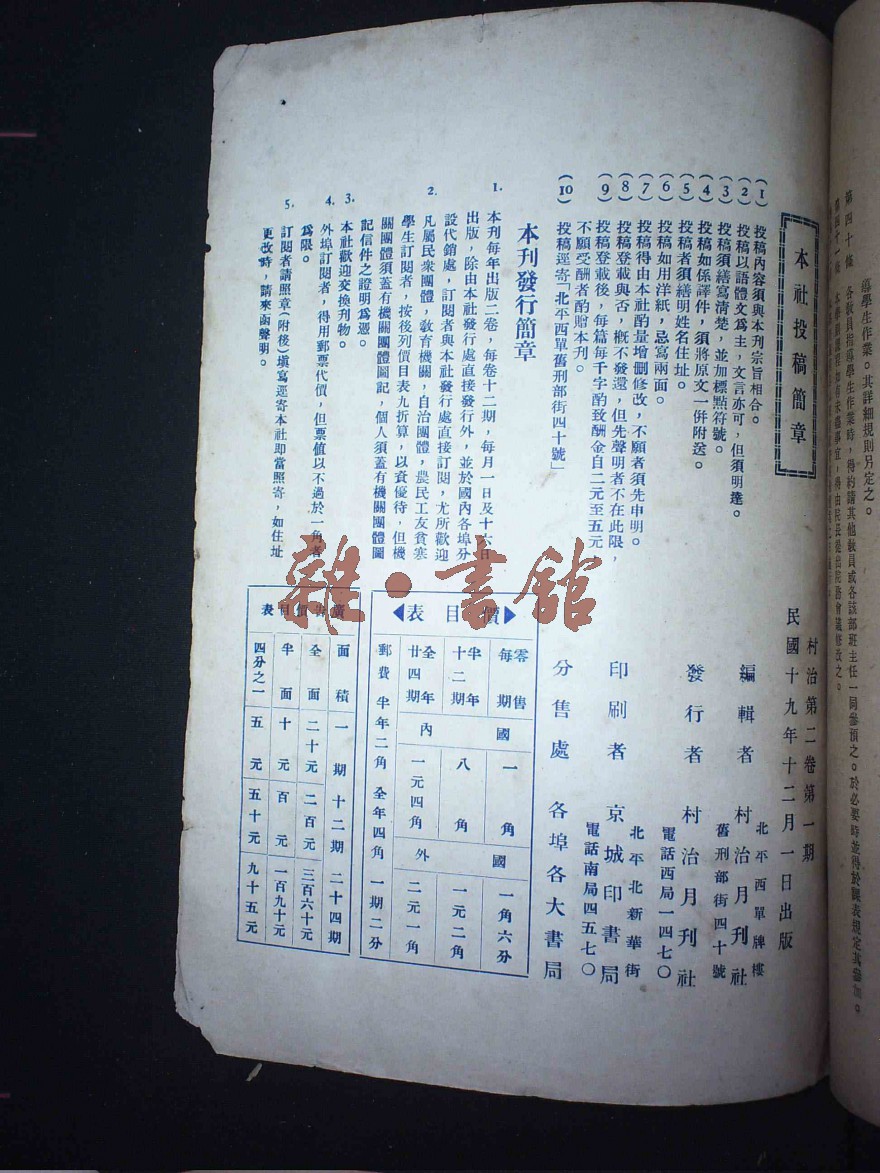 導學生作業。其詳細規則另定之。
第四十條　各教員指導學生作業時，得約請其他教員或各該部班主任一同參預之。於必要時並得於課表規定其參加。
本社投稿簡章
(1)投稿內容須與本刊宗旨相合。
(2)投稿以語體文爲主，文言亦可，但須明達。
(3)投稿須繕寫清楚，並加標點符號。
(4)投稿如係譯件，須將原文一併附送。
(5)投稿者須繕明姓名住址。
(6)投稿如用洋紙，忌寫兩面。
(7)投稿得由本社酌量增刪修改，不願者須先申明。
(8)投稿登載與否，槪不發還，但先聲明者不在此限，
(9)投稿登載後，每篇每千字酌致酬金自二元至五元
不願受酬者酌贈本刊。
(10)投稿逕寄「北平西單舊刑部街四十號」
本刊發行簡章
1.本刊每年出版二卷，每卷十二期，每月一日及十六日
出版，除由本社發行處直接發行外，並於國內各埠分
設代銷處，訂閱者與本社發行處直接訂閱，尤所歡迎
2.凡屬民衆團體，敎育機關，自治團體，農民工友貧寒
學生訂閱者，按後列價目表九折算，以資優待，但機
關團體須蓋有機關團體圖記，個人須蓋有機關團體圖
記信件之證明爲憑。
3.本社歡迎交換刊物。
4.外埠訂閱者，得用郵票代價，但票值以不過於一角者
爲限。
5.訂閱者請照章(附後)塡寫逕寄本社即當照寄，如住址
更改時，請來函聲明。
村治第二卷第一期
民國十九年十二月一日出版
編輯者　村治月刊社
北平西單牌樓
舊刑部街四十號
發行者　村治月刊社
電話西局一四七〇
印刷者　京城印書局
北平北新華街
電話南局四五七〇
分售處　各埠各大書局
價目表
零售每期　國內　一角　國外　一角六分
半年十二期　八角　一元二角
全年廿四期　一元四角　二元一角
郵費　半年二角　全年四角　一期二分
廣告價目表
面積　一期　十二期　二十四期
全面　二十元　二百元　三百六十元
半面　十元　百元　一百九十元
四分之一　五元　五十元　九十五元
雜·書館